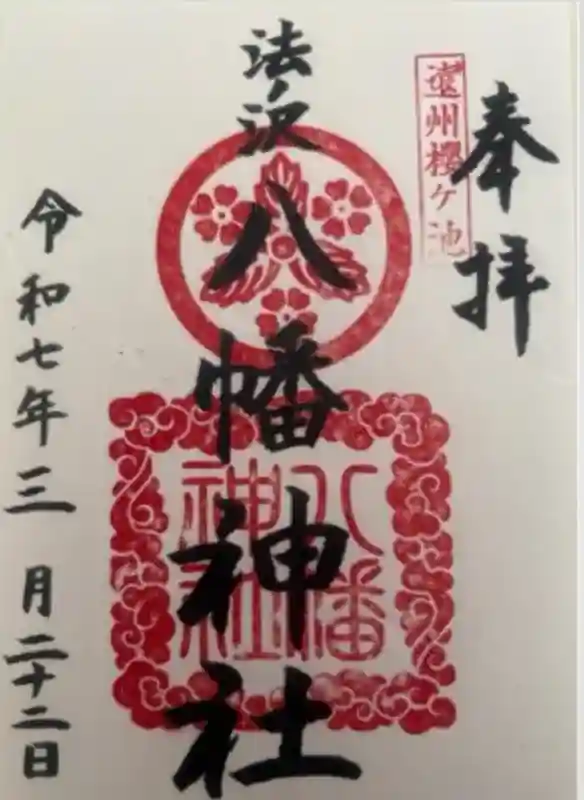 奉拝
遠州櫻ケ池
法ノ沢
八幡神社
八幡
神社
令和七年三月二十二日